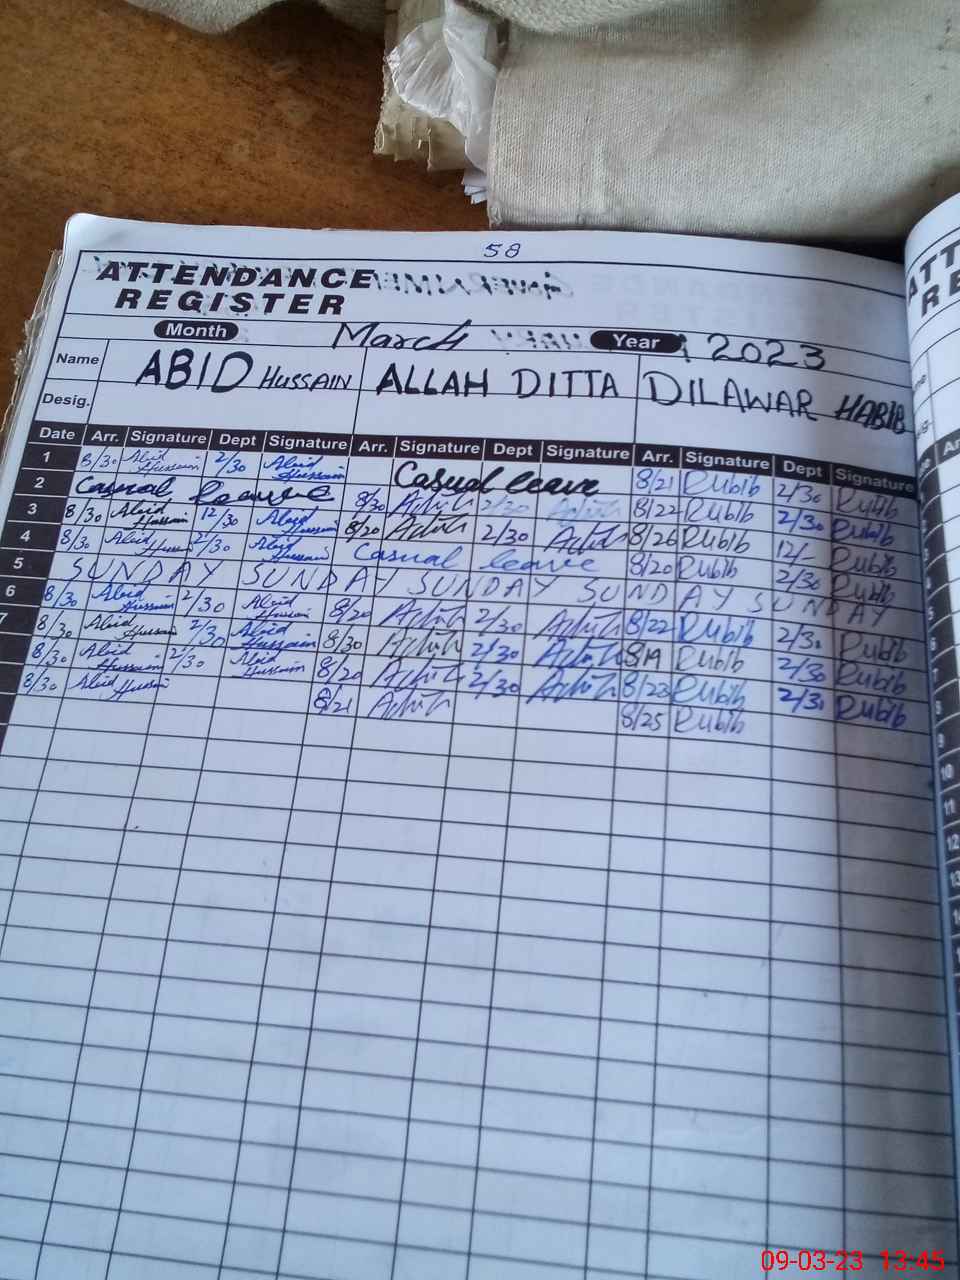 58
ATTENDANCE
REGISTER
Month March Year 2023
Name ABID HUSSAIN ALLAH DITTA DILAWAR HABIB
Desig.
Date Arr. Signature Dept Signature Arr. Signature Dept Signature Arr. Signature Dept Signature
1 8/30 Abid Hussain 2/30 Abid Hussain Casual leave 8/21 Rubib 2/30 Rubib
2 Casual leave 8/30 2/30 8/22 Rubib 2/30 Rubib
3 8/30 Abid Hussain 12/30 Abid Hussain 8/20 2/30 8/26 Rubib 12/- Rubib
4 8/30 Abid Hussain 2/30 Abid Hussain Casual leave 8/20 Rubib 2/30 Rubib
5 SUNDAY SUNDAY SUNDAY SUNDAY SUNDAY
6 8/30 Abid Hussain 2/30 Abid Hussain 8/20 2/30 8/22 Rubib 2/30 Rubib
7 8/30 Abid Hussain 2/30 Abid Hussain 8/30 2/30 8/19 Rubib 2/30 Rubib
8/30 Abid Hussain 2/30 Abid Hussain 8/20 2/30 8/23 Rubib 2/30 Rubib
8/30 Abid Hussain 8/21 8/25 Rubib
09-03-23 13:45